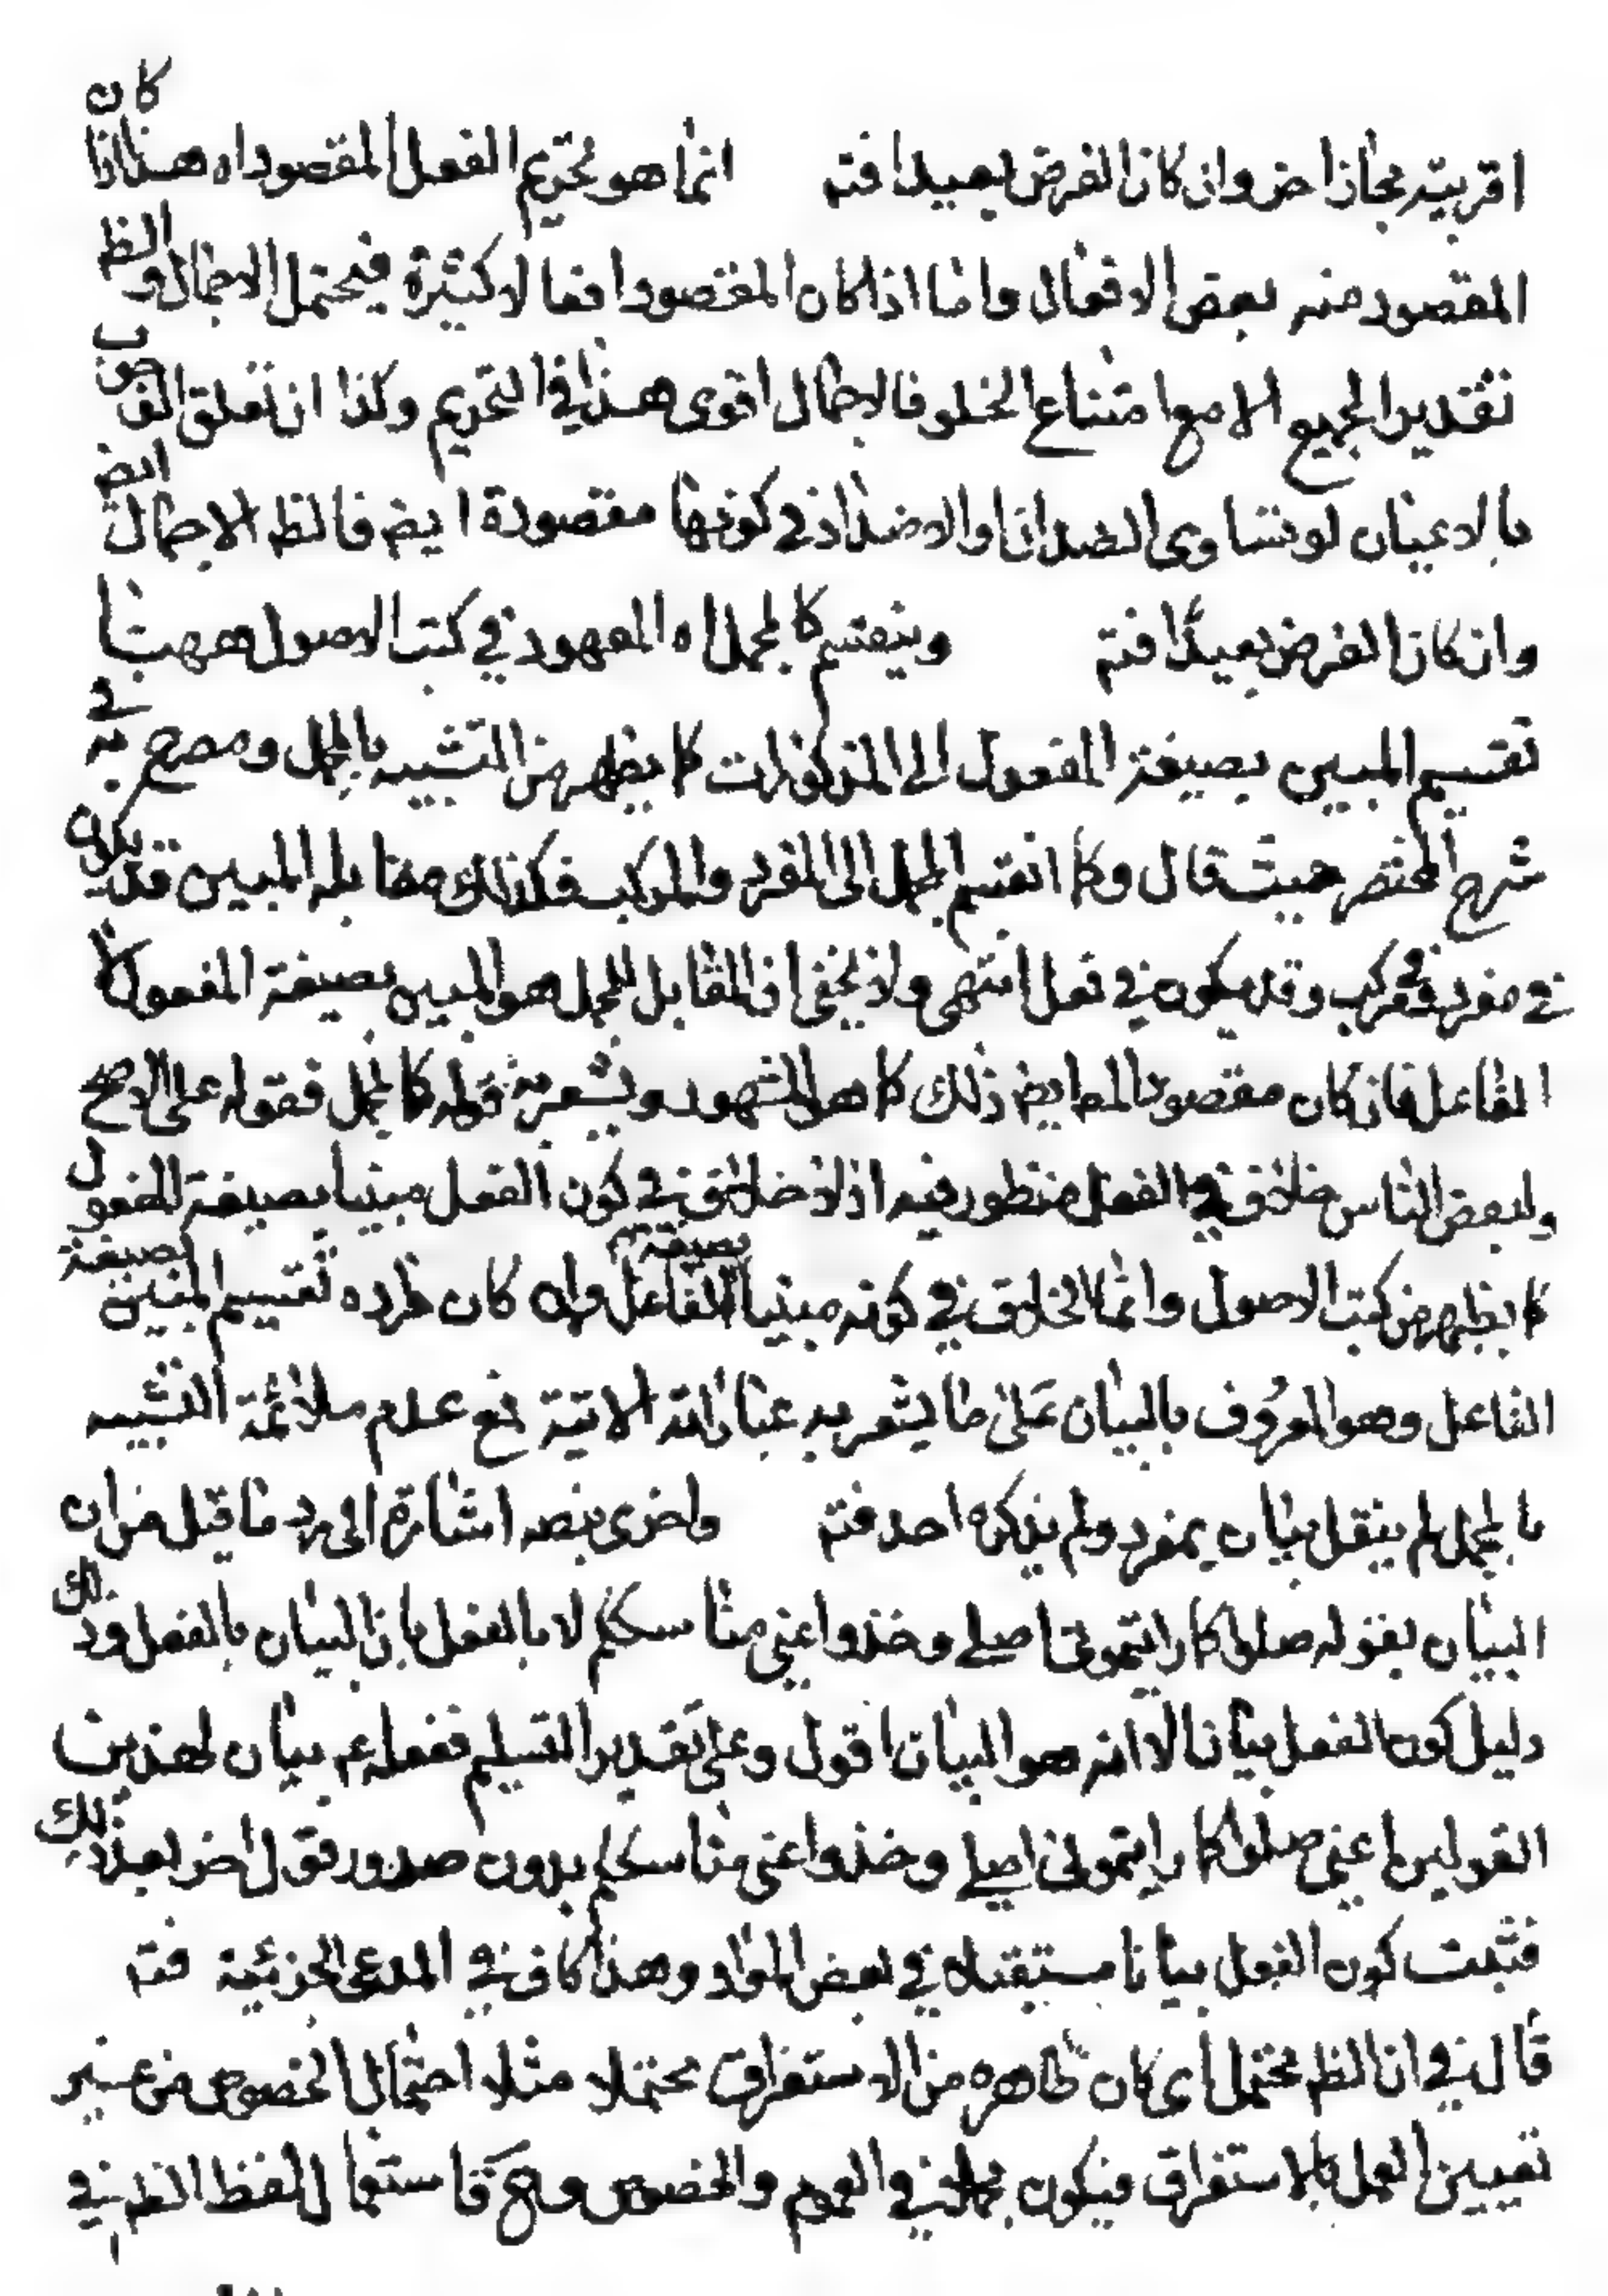 اقربيته مجاز اخر وان كان الفرض بعيدا فتم انما هو تحريم الفعل المقصود اه هذا اذا كان
المقصود منه بعض الافعال واما اذا كان المقصود افعالا كثيرة فيحتمل الاجمال والظ
تقدير الجميع الا مع امتناع الخلو فالاجمال اقوى هذا في التحريم وكذا ان تعلق الوجوب
بالاعيان لو تساوى الضدان او الاضداد في كونها مقصودة ايض فالظ الاجمال ايض
وان كان الفرض بعيدا فتم وينقسم كالمجمل اه المعهود في كتب الاصول ههنا
تقسيم المبين بصيغة المفعول الى المذكورات كما يظهر من التشبيه بالمجمل ومصرح به في
شرح المختصر حيث قال وكما انقسم المجمل الى المفرد والمركب فكذلك مقابله المبين قد يكون
في مفرد وفي مركب وقد يكون في فعل انتهى ولا يخفى ان المقابل للمجمل هو المبين بصيغة المفعول لا
الفاعل فان كان مقصود المص ايض ذلك كما هو المشهور ويشعر به قوله كالمجمل فقوله على الاصح
ولبعض الناس خلاف في الفعل منظور فيه اذ لا خلاف في كون الفعل مبينا بصيغة المفعول
كما يظهر من كتب الاصول وانما الخلاف في كونه مبينا بصيغة الفاعل وان كان مراده تقسيم المبين بصيغة
الفاعل وهو المعروف بالبيان على ما يشعر به عباراته الاتية فمع عدم ملائمة التشبيه
بالمجمل لم ينقل بيان بمفرد ولم يذكره احد فتم واخرى بنصه اشارة الى رد ما قيل من ان
البيان بقوله صلوا كما رايتموني اصلي وخذوا عني مناسككم لا بالفعل بان البيان بالفعل وذلك
دليل كون الفعل بيانا لا انه هو البيان اقول وعلى تقدير التسليم ففعله ع بيان لهذين
القولين اعني صلوا كما رايتموني اصلي وخذوا عني مناسككم بدون صدور قول اخر بعد ذلك
فثبت كون الفعل بيانا مستقلا في بعض المواد وهذا كاف في المدعى الجزئية فتم
قال في ان الظ محتمل اى كان ظاهره من الاستغراق محتملا مثلا احتمال الخصوص من غير
تعيين العمل بالاستغراق فيكون مجملا في العموم والخصوص وح فاستعمال اللفظ العام في